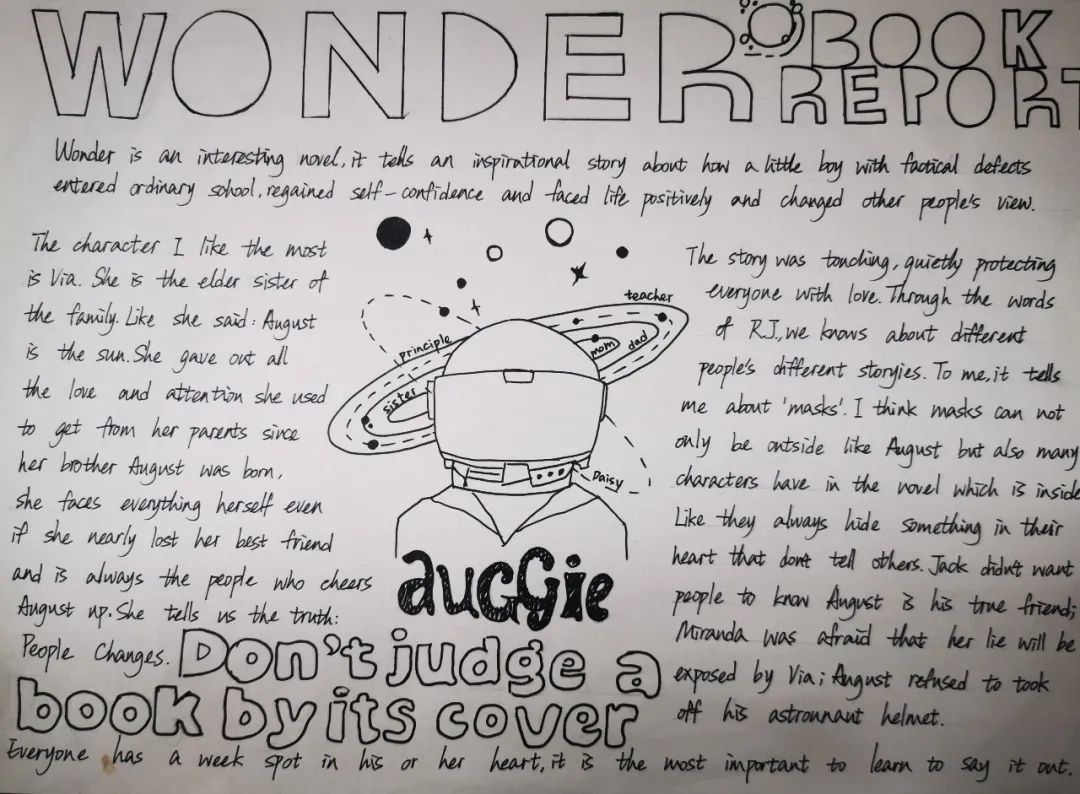 WONDER BOOK REPORT
Wonder is an interesting novel, it tells an inspirational story about how a little boy with factical defects
entered ordinary school, regained self-confidence and faced life positively and changed other people's view.
The character I like the most
is Via. She is the elder sister of
the family. Like she said: August
is the sun. She gave out all
the love and attention she used
to get from her parents since
her brother August was born,
she faces everything herself even
if she nearly lost her best friend
and is always the people who cheers
August up. She tells us the truth:
People Changes.
principle
sister
teacher
mom
dad
Daisy
auggie
The story was touching, quietly protecting
everyone with love. Through the words
of R.J., we knows about different
people's different storyies. To me, it tells
me about 'masks'. I think masks can not
only be outside like August but also many
characters have in the novel which is inside
Like they always hide something in their
heart that don't tell others. Jack didn't want
people to know August is his true friend;
Miranda was afraid that her lie will be
exposed by Via; August refused to took
off his astronnant helmet.
Don't judge a
book by its cover
Everyone has a week spot in his or her heart, it is the most important to learn to say it out.